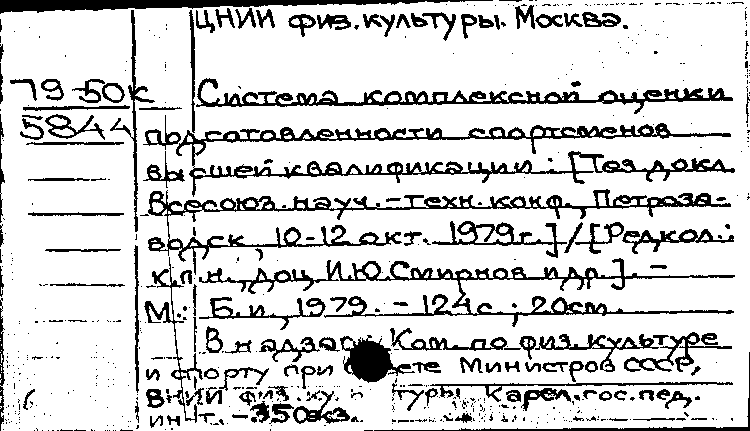 ЦНИИ физ.культуры. Москва.
79-50к Система комплексной оценки
5844 подготовленности спортсменов
высшей квалификации : [Тез.докл.
Всесоюз.науч.-техн.конф., Петроза-
водск, 10-12 окт. 1979г.]/[Редкол.:
к.п.н., доц. И.Ю.Смирнов и др.]. -
М.: Б.и., 1979. - 124с.; 20см.
В надзаг.: Ком. по физ.культуре
и спорту при Совете Министров СССР,
ВНИИ физ. культуры, Карел.гос.пед.
ин-т. - 350экз.